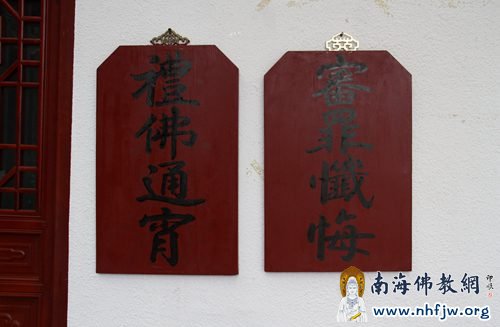 審罪懺悔
禮佛通宵
南海佛教網
www.nhfjw.org